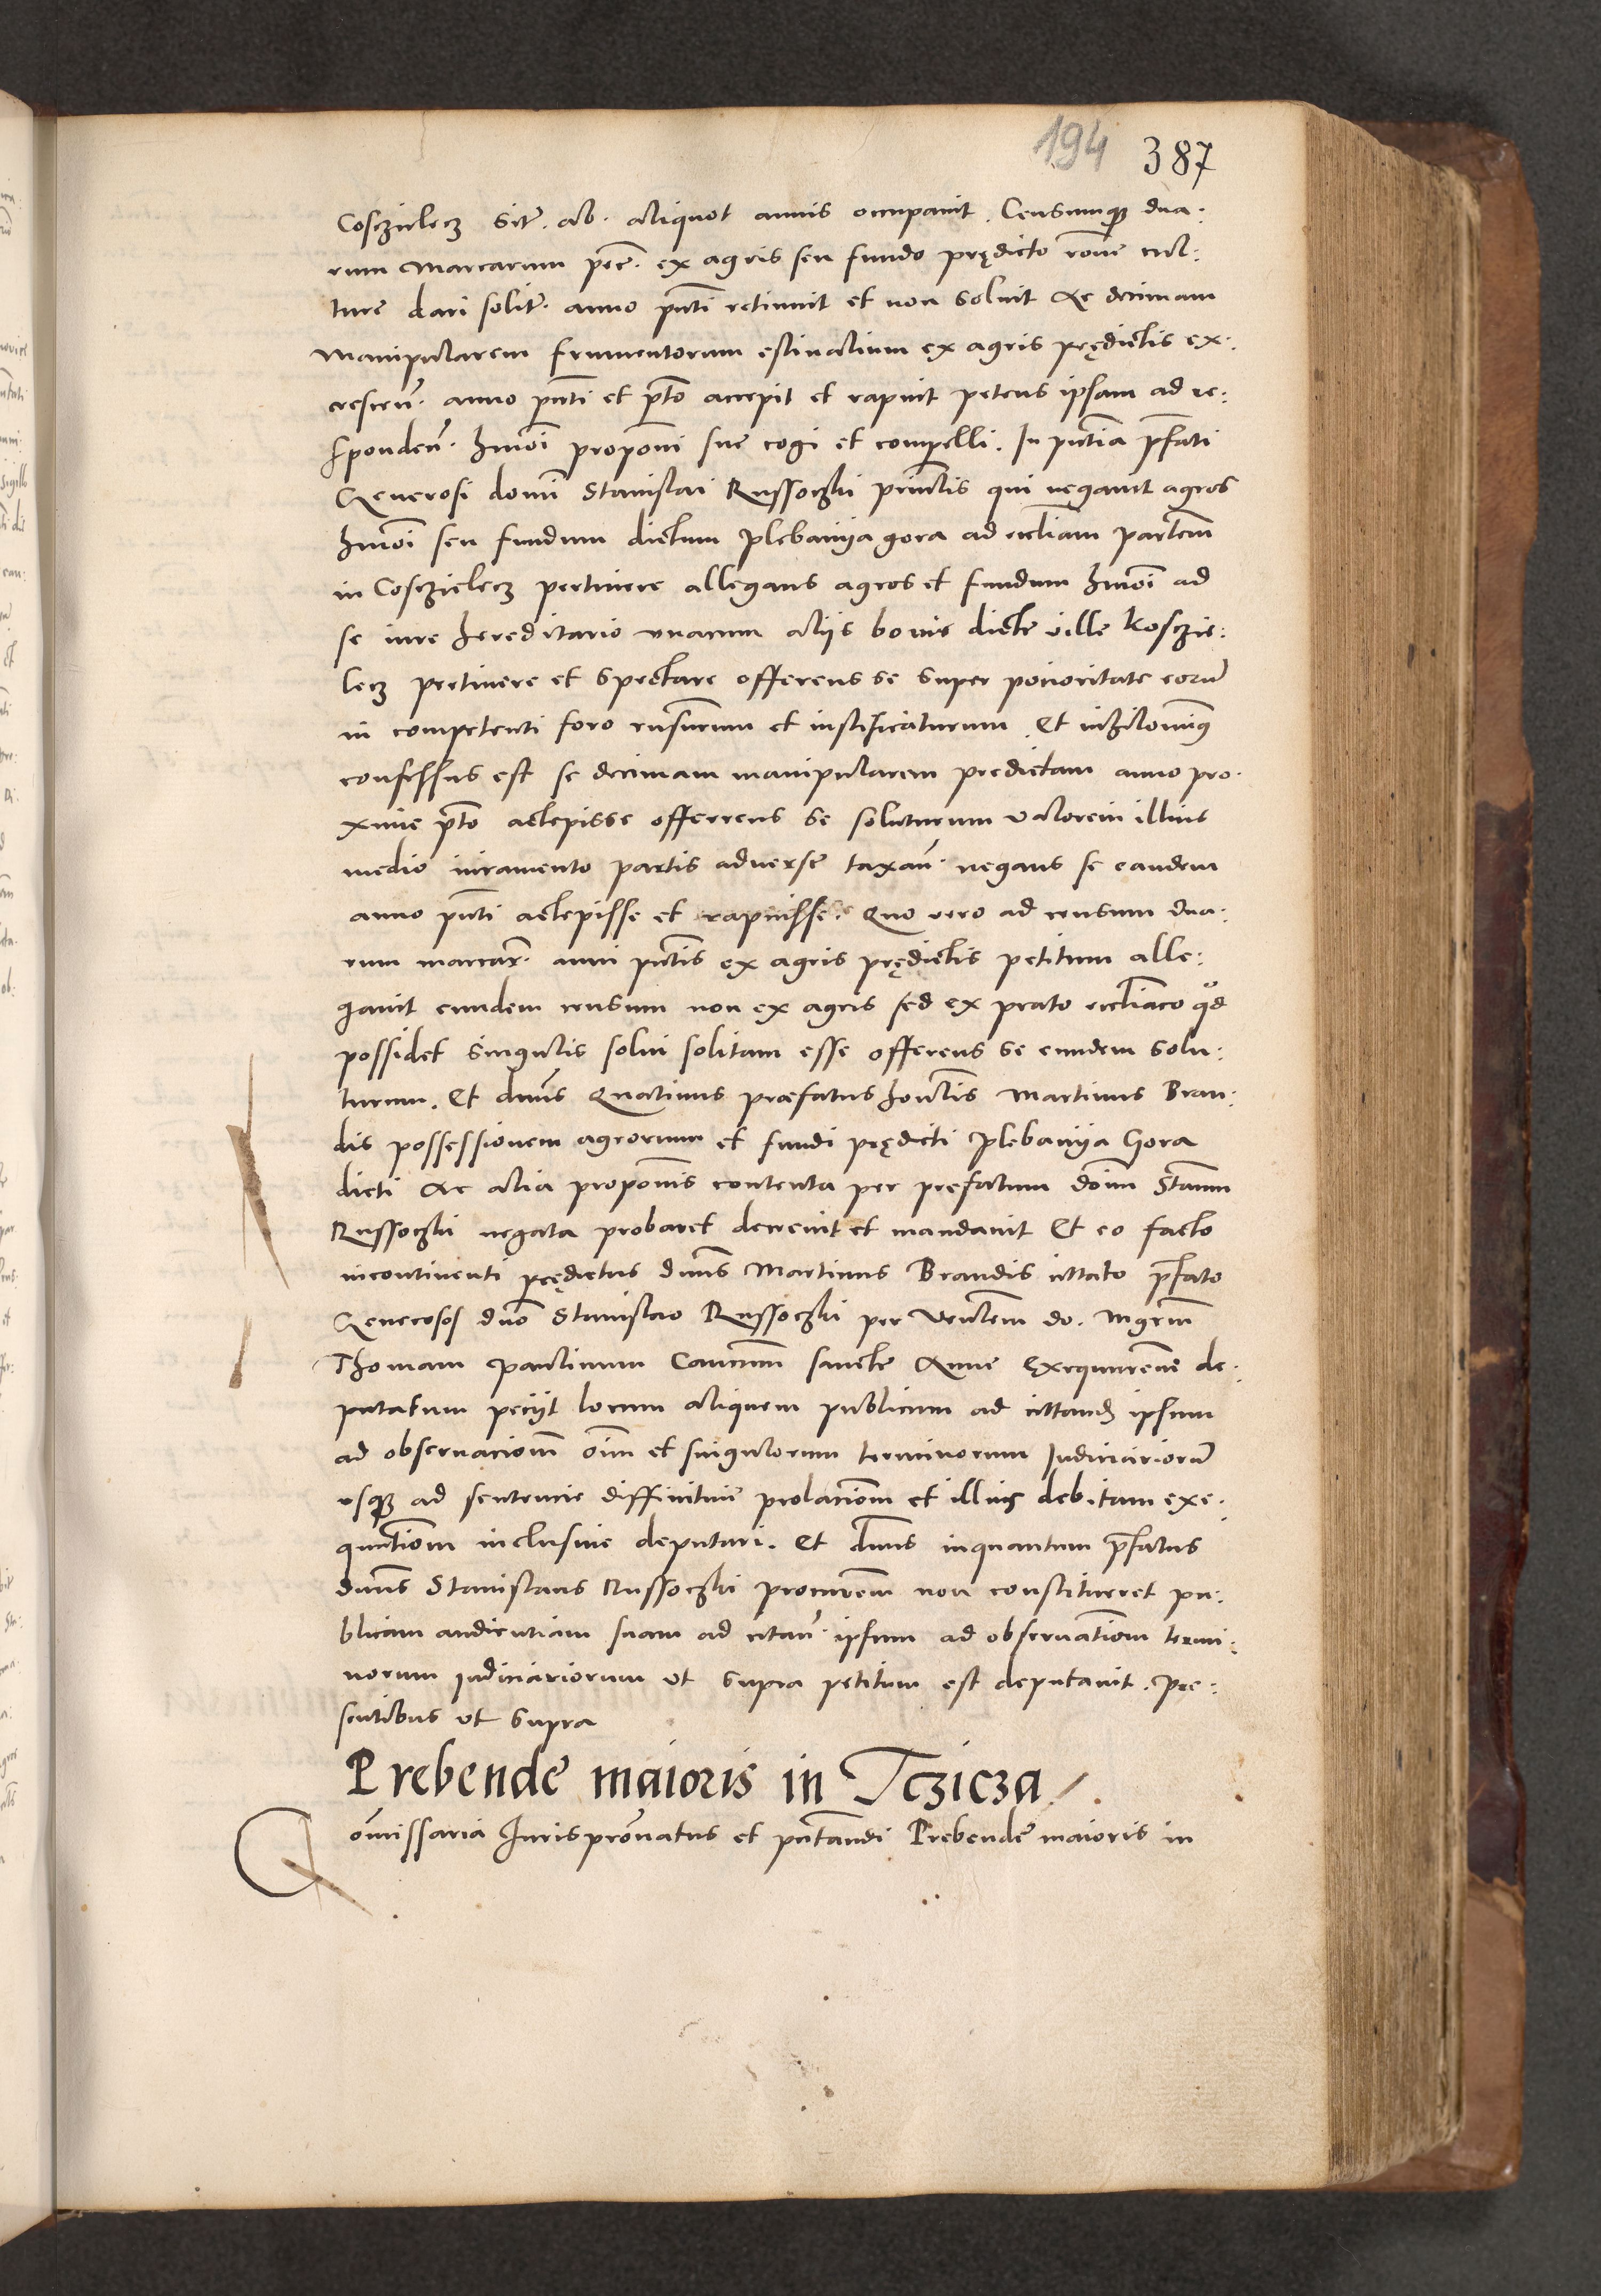 194 387
Cosczielecz sit. ab. aliquot annis occupauit. Censumq dua:
rum Marcarum pec. ex agris seu fundo prędicto rone cul:
ture dari solit. anno pnti retinuit et non soluit Ac decimam
Manipularem frumentorum estiualium ex agris prędictis ex:
crescen. anno pnti et pto accepit et rapuit petens ipsam ad re:
sponden. hmoi proponi sue cogi et compelli. In pntia pfati
Generosi domi Stanislai Russoczki principlis qui negauit agros
hmoi seu fundum dictum Plebanya gora ad eccliam partem
in Cosczielecz pertinere allegans agros et fundum hmoi ad
se iure hereditario vnacum aliis bonis dicte ville Kosczie:
lecz pertinere et spectare offerens se super prioritate eorum
in competenti foro responsurum et iustificaturum. Et nihilominus
confessus est se decimam manipularem predictam anno pro:
xime pto accepisse offerrens se soluturum valorem illius
medio iuramento partis aduerse taxan. negans se eandem
anno pnti accepisse et rapuisse. Quo vero ad censum dua:
rum marcar. anni pntis ex agris prędictis petitum alle:
gauit eundem censum non ex agris sed ex prato eccliaco qd
possidet singulis solui solitam esse offerens se eundem solu:
turum. Et dnus Quatinus præfatus honlis Martinus Bran:
dis possessionem agrorum et fundi prędicti Plebanya Gora
dicti Ac alia proponis contenta per prefatum doim Stanm
Russoczki negata probaret decreuit et mandauit Et eo facto
incontinenti prędictus dnus Martinus Brandis cittato pfato
Generoso dno Stanislao Russoczki per Ventem do. Mgrm
Thomam paulinum Canonum sancte Anne Exequutorem de:
putatum peciit locum aliquem publicum ad cittand ipsum
ad obseruacionem oim et singulorum terminorum Iudiciariorum
vsq ad sentencie diffinitiue prolacionem et illius debitam exe:
quutionem inclusiue deputari. Et dnus inquantum pfatus
dnus Stanislaus Russoczki procurem non constitueret pu:
blicam audientiam suam ad citan. ipsum ad obseruationem termi:
norum iudiciariorum vt supra petitum est deputauit. pre:
sentibus vt supra
Prebende maioris in Tczicza
Comissaria Iurispronatus et pntandi Prebende maioris in